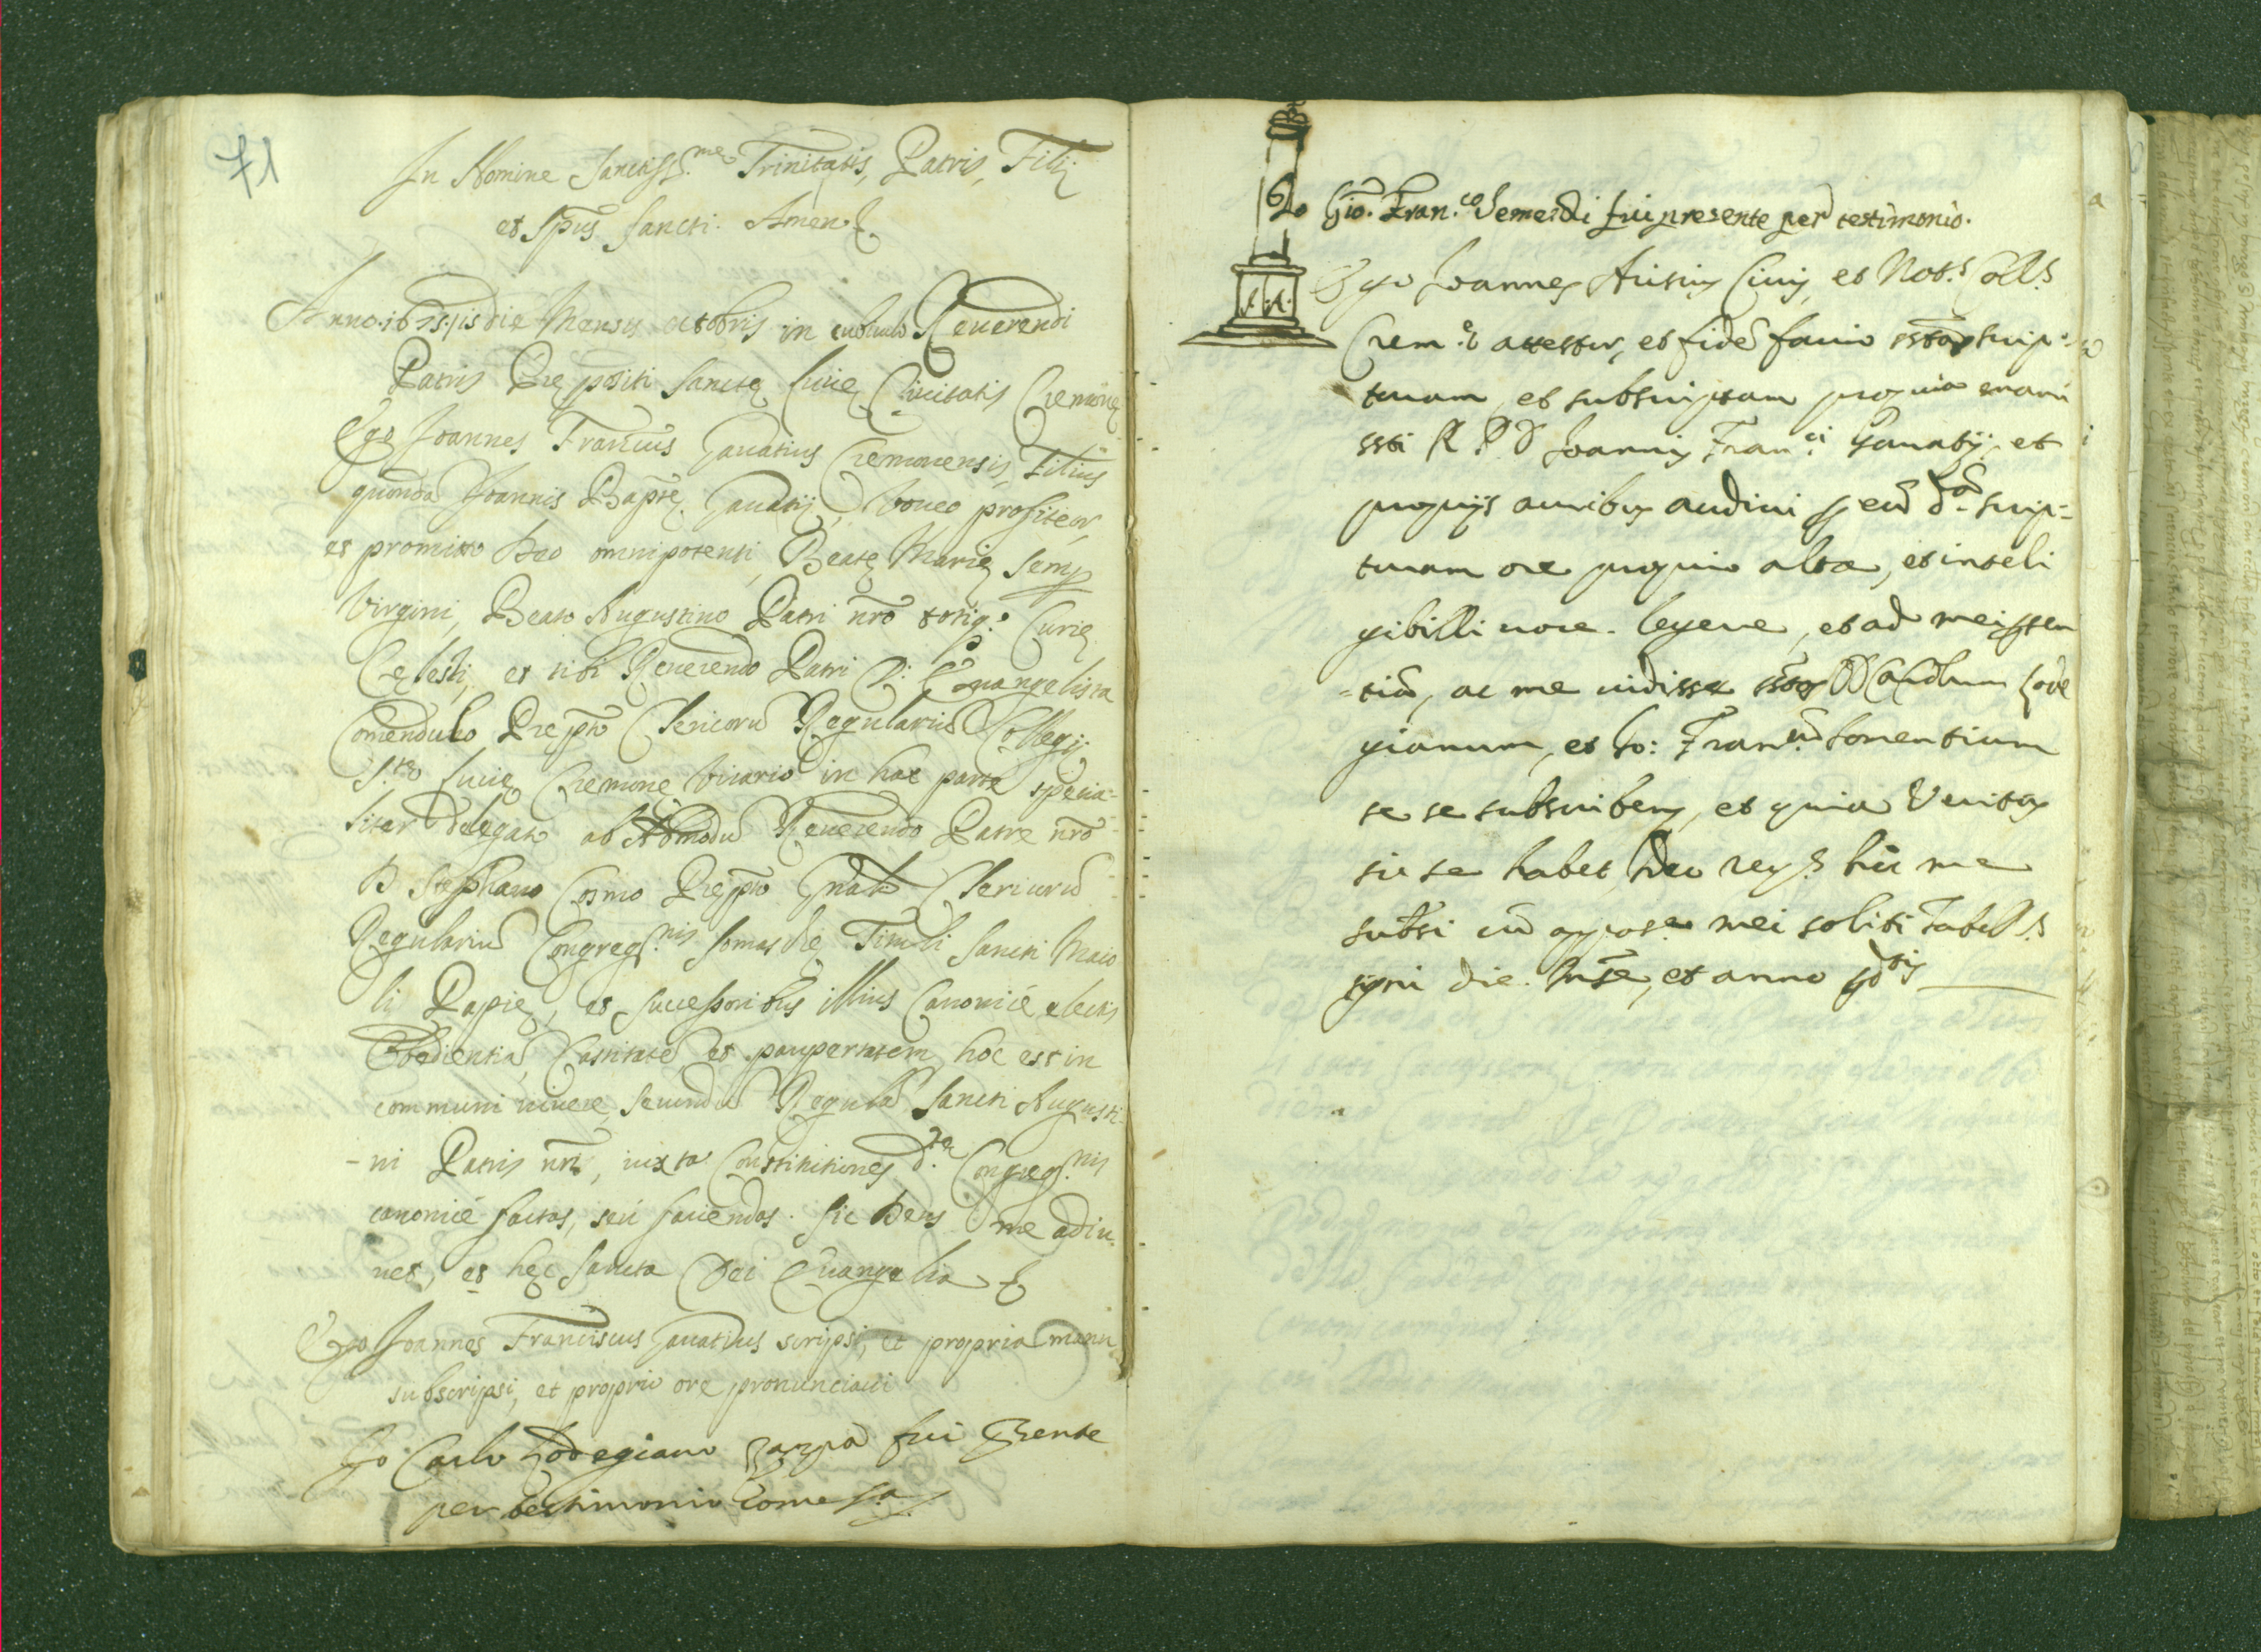 71
In Nomine Sanctiss.me Trinitatis, Patris, Filij
et Spus Sancti. Amen.
Anno 1675 15 die Mensis octobris in cubiculo Reuerendi
Patris Prepositi Sancte Lucie Ciuitatis Cremone
Ego Joannes Francius Gauatius Cremonensis, Filius
quonda Joannis Bapte Gauatij, voueo profiteor
et promitto Deo omnipotenti, Beate Marie semp
Virgini, Beato Augustino Patri nro totiq.e Curie
Celesti, et tibi Reuerendo Patri D. Euangelista
Comendulo Prepto Clericoru Regulariu Collegij
S.te Lucie Cremone Vicario in hac parte specia-
liter delegato ab Admodu Reuerendo Patre nro
D Stephano Cosmo Prepto Gnali Clericoru
Regulariu Congreg.nis Somasche Tituli Sancti Maio
li Papie, et successoribus illius Canonicé electis
Obedientia, Castitate, et paupertatem, hoc est in
communi uiuere, secundu Regula Sancti Augusti-
-ni Patris nri, iuxta Constitutiones d.te Congreg.nis
canonicé factas, seu faciendas. Sic Deus me adiu-
uet, et hec Sancta Dei Euangelia
Ego Joannes Franciscus Gauatius scripsi, et propria manu
subscripsi, et proprio ore pronunciaui
Jo Carlo Lodegiano fui Presente
per testimonio come s.a
Io Gio. Fran.co fui presente per testimonio.
Ego Joannes Ciuis, et Not.s Coll.s
Crem.e attestor, et fide facio scrip-
turam, et subscriptam propria manu
R. P. D Joannis Fran.ci Gauatij, et
proprijs auribus audiui eu d.a scrip-
turam ore proprio alta, et inteli
gibilli uoce legere, et ad mei presen
-tia, ac me uidisse Carolum Lode
gianum, et Jo: Fran.cu
se se subscribere, et quia Veritas
sic se habet Ideo hic me
subsi cu appos.e mei soliti Tabell.s
signi die. Mse, et anno